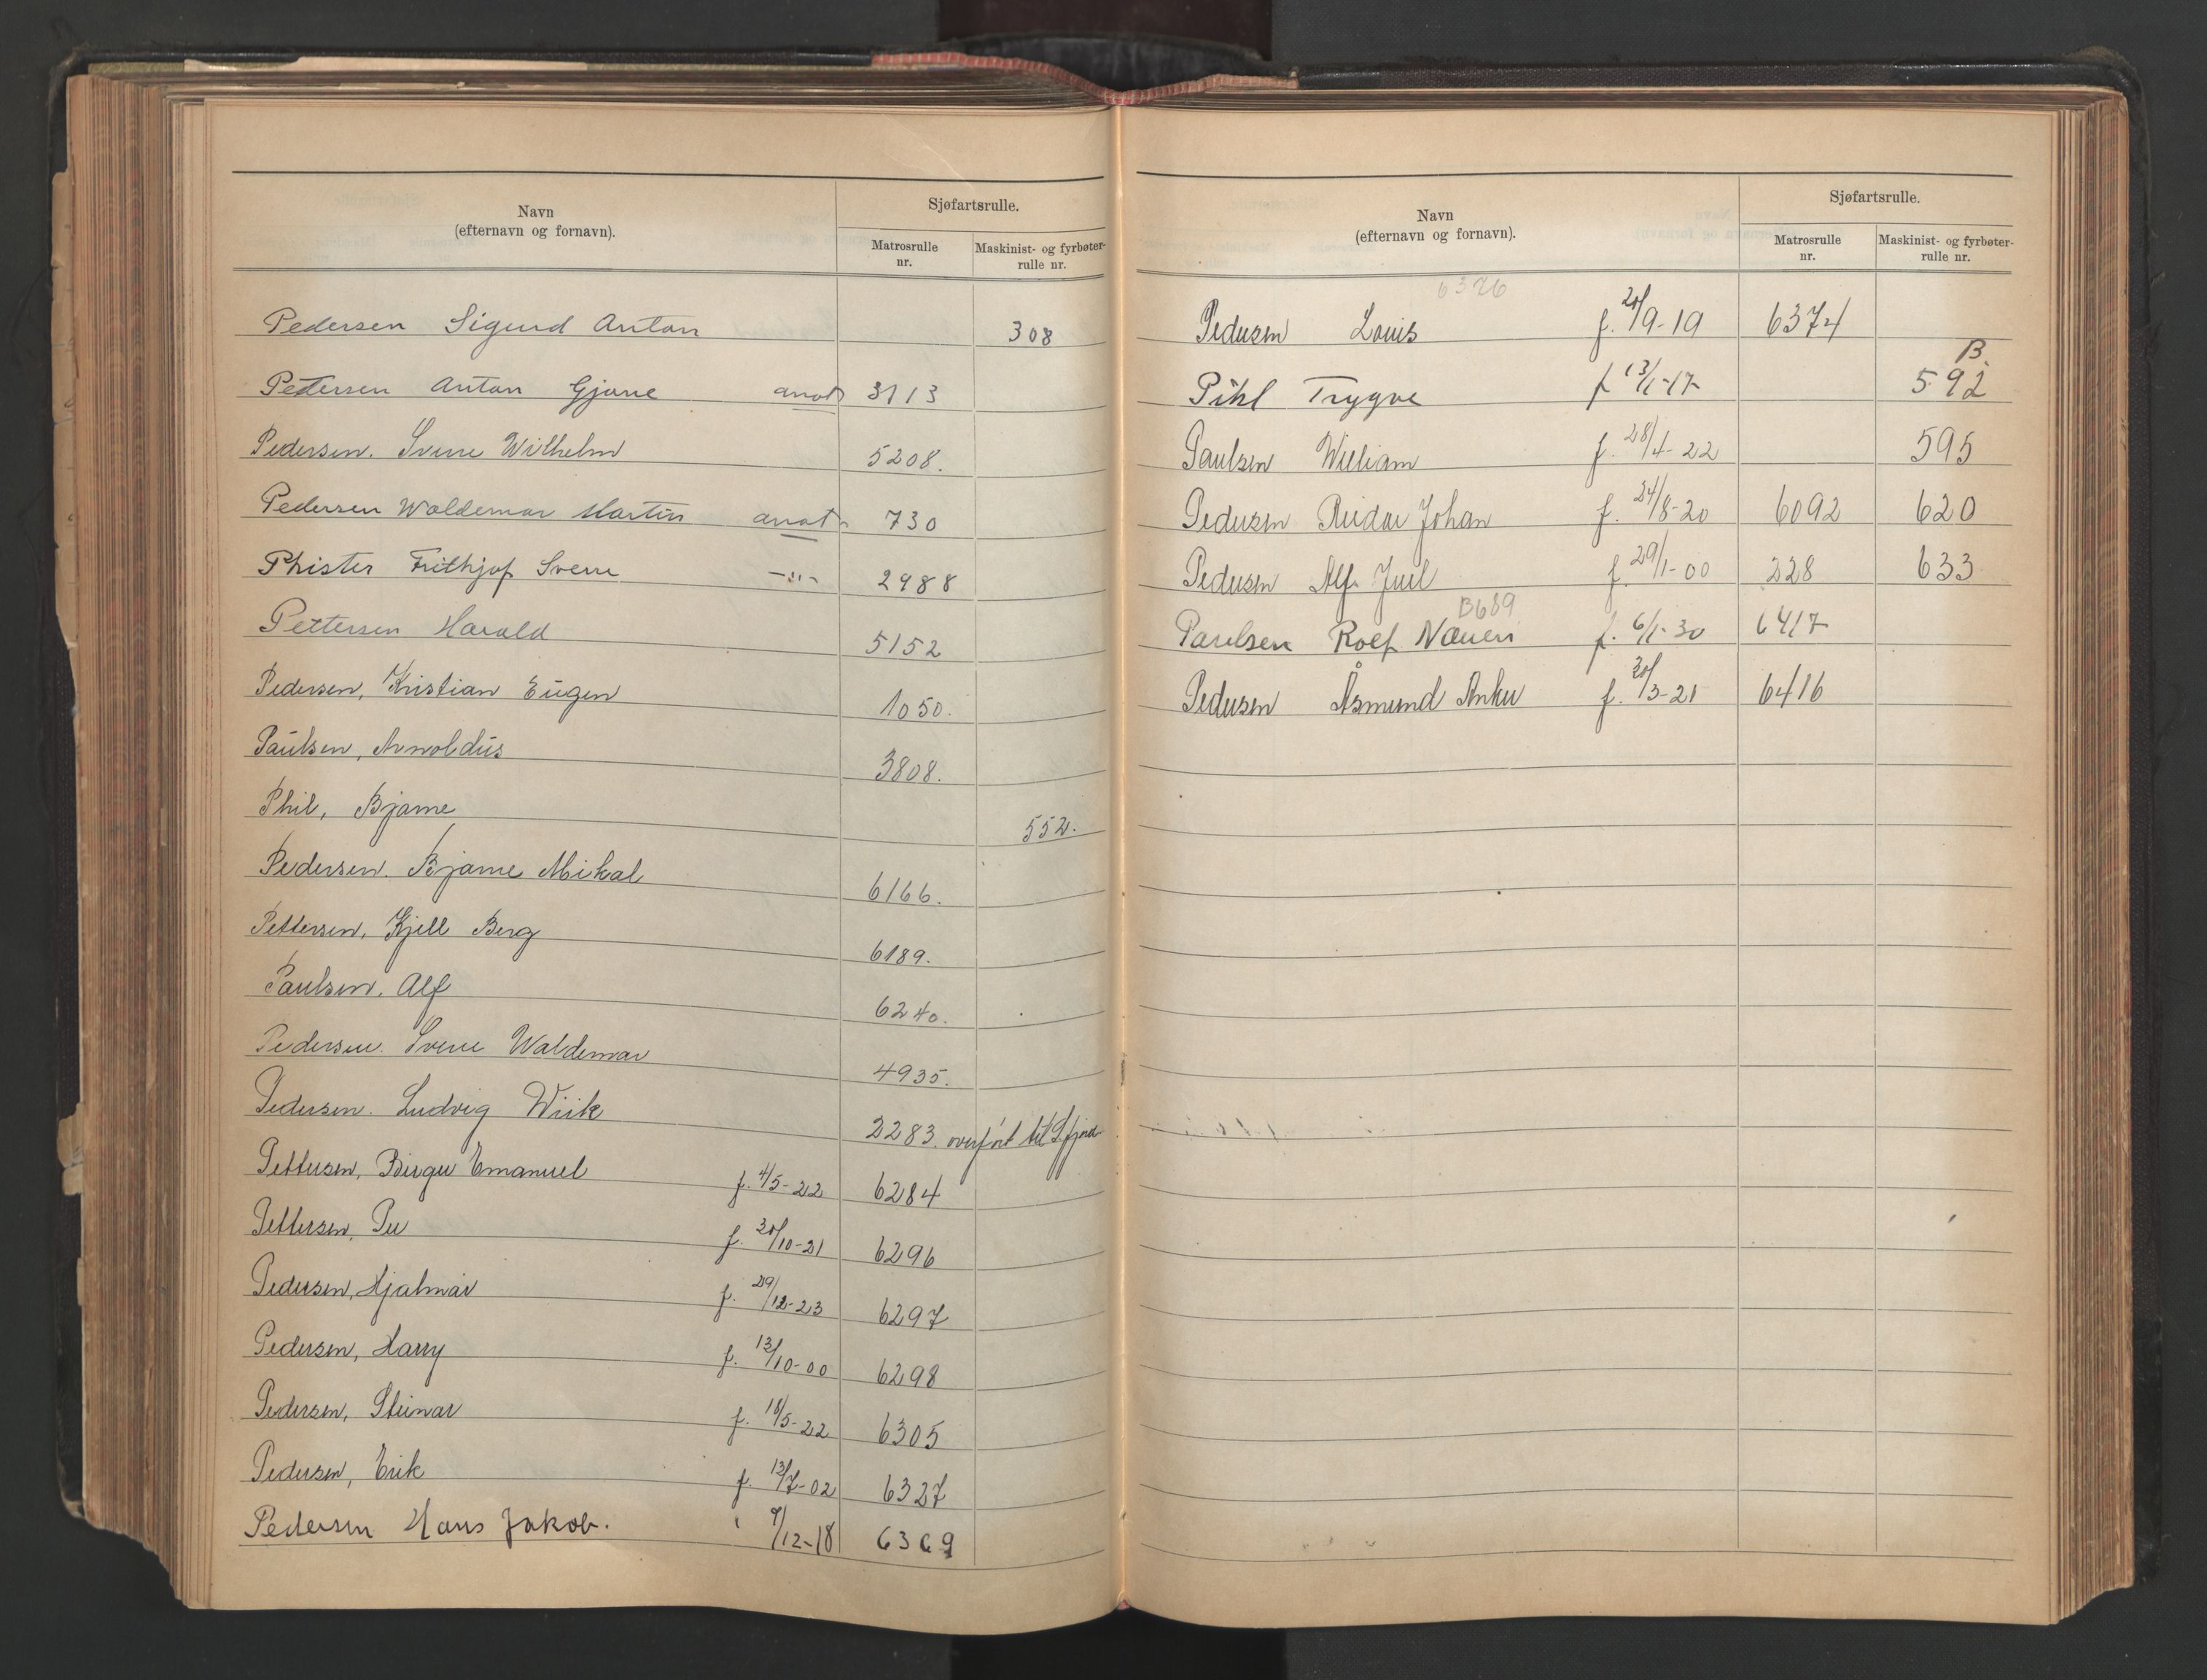 Navn
(efternavn og fornavn).
Sjøfartsrulle.
Matrosrulle
nr.
Maskinist- og fyrbøter-
rulle nr.
Pedersen Sigurd Anton 308
Pettersen Anton Gjone anot 3113
Pedersen. Sverre Wilhelm 5208.
Pedersen Waldemar Martin anot 730
Phister Frithjof Sverre -"- 2988
Pettersen Harald 5152
Pedersen, Kristian Eugen 1050.
Paulsen, Arnoldus 3808.
Phil, Bjarne 552.
Pedersen. Bjarne Mikal 6166.
Pettersen, Kjell Berg 6189.
Paulsen. Alf 6240.
Pedersen. Sverre Waldemar 4935.
Pedersen. Ludvig Wiik 2283. overført til
Pettersen, Birger Emanuel f. 4/5-22 6284
Pettersen, Per f. /10-21 6296
Pedersen, Hjalmar f. 29/12-23 6297
Pedersen, Harry f. 13/10-00 6298
Pedersen, Steinar f. /5-22 6305
Pedersen, Erik f. 13/7-02 6327
Pedersen Hans Jakob. 9/12-18 6369
Navn
(efternavn og fornavn).
Sjøfartsrulle.
Matrosrulle
nr.
Maskinist- og fyrbøter-
rulle nr.
6376
Pedersen Louis f. /9-19 6374
B.
Pihl Trygve f 13/1-17 592
Paulsen William f. 28/4-22 595
Pedersen Reidar Johan f. 24/8-20 6092 620
Pedersen Alf Juel f. 29/1-00 228 633
B689
Paulsen Rolf f. 6/1-30 6417
Pedersen Åsmund Anker f. /3-21 6416